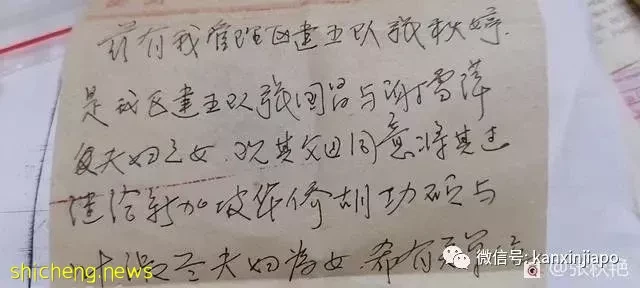 兹有我管理区建五队张秋婷.
是我区建五队张国昌与谢雪萍
夫妇之女,现其父母同意将其过
给新加坡华侨胡功硕与
夫妇为女,希有关单
shicheng.news
微信号: kanxinjiapo
@张秋艳